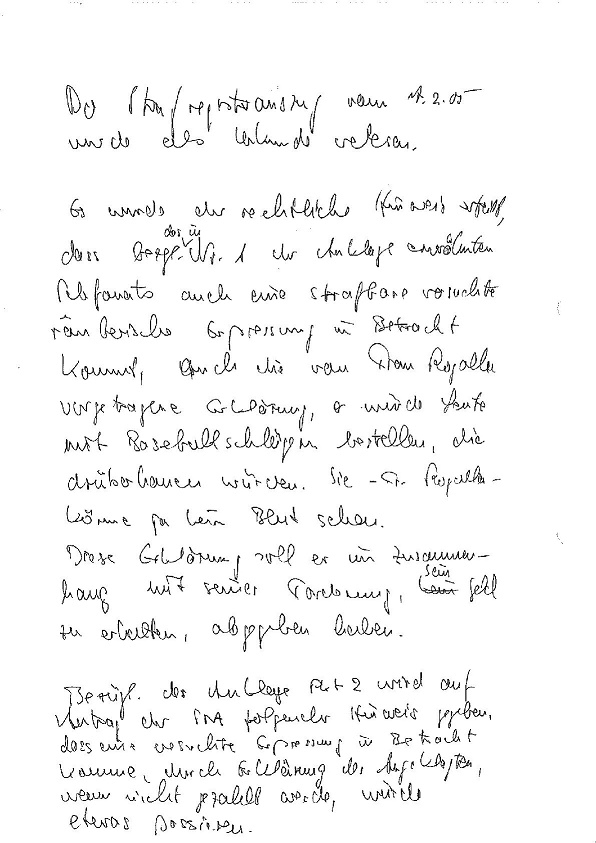 Der Strafregisterauszug vom 17.2.05
wurde als Urkunde verlesen.
Es wurde der rechtliche Hinweis erteilt,
dass bezgl. das in Nr. 1 der Anklage erwähnten
auch eine strafbare versuchte
räuberische Erpressung in Betracht
kommt, durch die von Frau Rogalla
vorgetragene Erklärung, er würde Leute
mit Baseballschlägern bestellen, die
drüberhauen würden. Sie - Fr. Rogalla -
könne ja kein Blut sehen.
Diese Erklärung soll er im Zusammen-
hang mit seiner Forderung, sein Geld
zu erhalten, abgegeben haben.
Bezügl. der Anklage Pkt 2 wird auf
Antrag der StA folgender Hinweis gegeben,
dass eine versuchte Erpressung in Betracht
komme, durch Erklärung des Angeklagten,
wenn nicht gezahlt werde, würde
etwas passieren.